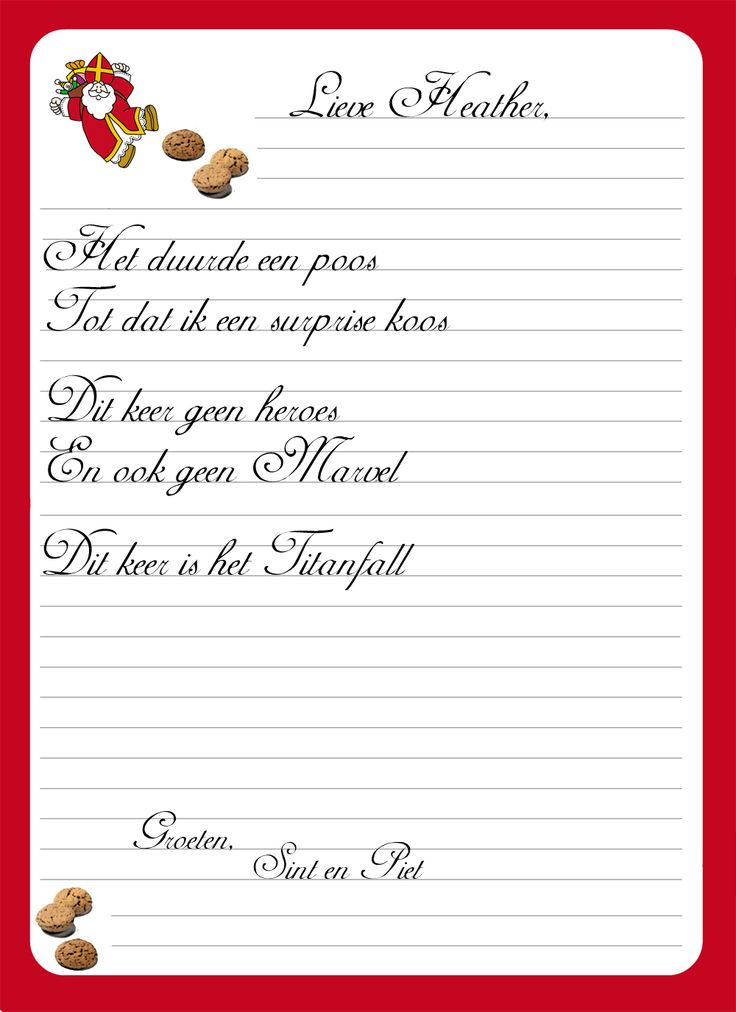 Lieve Heather,
Het duurde een poos
Tot dat ik een surprise koos
Dit keer geen heroes
En ook geen Marvel
Dit keer is het Titanfall
Groeten,
Sint en Piet